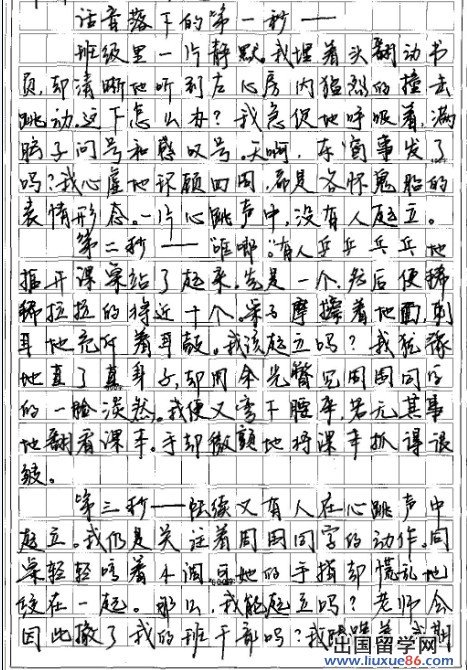 话音落下的第一秒——
班级里一片静默。我埋着头翻动书
页,却清晰地听到左心房内猛烈的撞击
跳动。这下怎么办?我急促地呼吸着,满
脑子问号和感叹号。天啊,东窗事发了
吗?我心虚地环顾四周,都是各怀鬼胎的
表情形态。一片心跳声中,没有人起立。
第二秒——“哐啷”。有人乒乒乓乓地
拉开课桌站了起来。先是一个,然后便稀
稀拉拉的将近十个。桌子摩擦着地面,刺
耳地充斥着耳鼓。我该起立吗?我犹豫
地直了直身子,却用余光瞥见周围同学
的一脸淡然。我便又弯下腰来,若无其事
地翻看课本。手却微颤地将课本抓得很
皱。
第三秒——陆续又有人在心跳声中
起立。我仍是关注着周围同学的动作。同
桌轻轻哼着小调可她的手指却慌乱地
绞在一起。那么,我能起立吗?老师会
因此撤了我的班干部吗?我
出国留学网
www.liuxue86.com